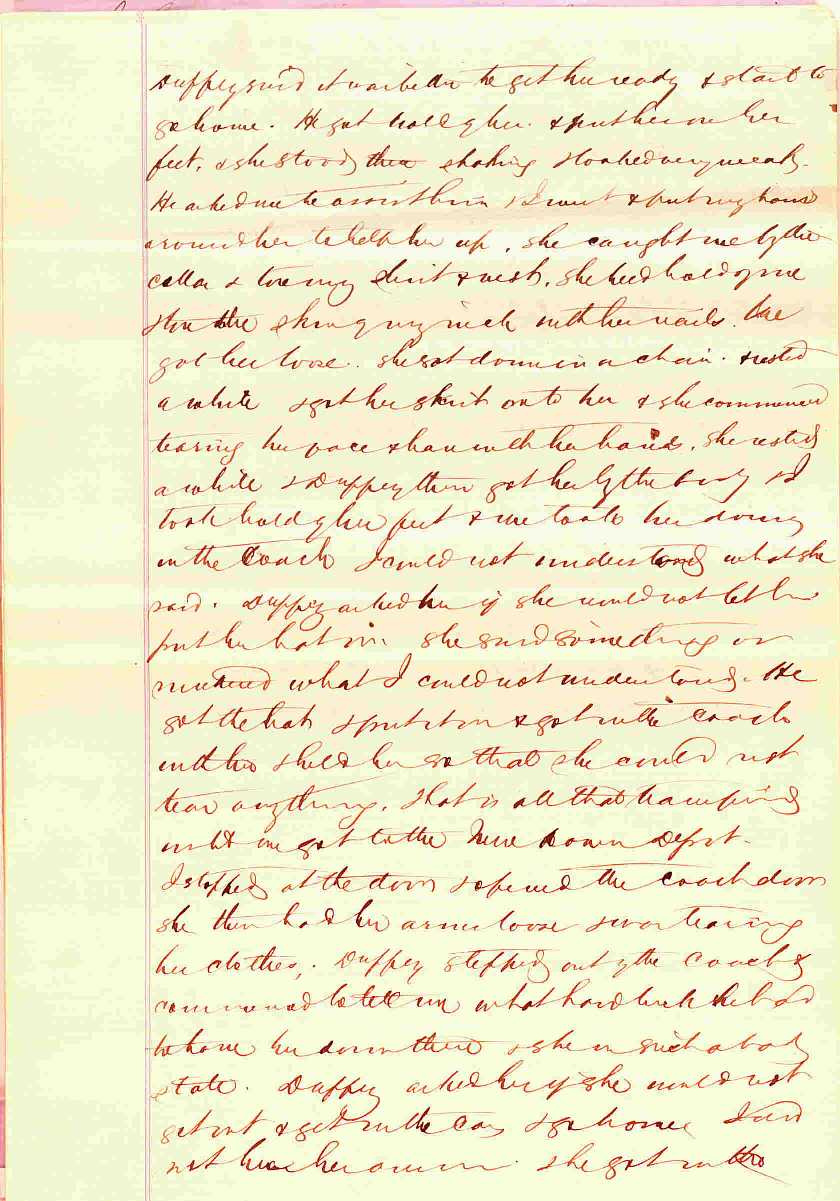 Duffey said it was better to get her ready & start to
go home. He got hold of her & put her on her
feet, & she stood there shaking & looked very weak.
He asked me to assist him & I went & put my hand
around her to help her up, she caught me by the
collar & tore my shirt & vest, she had hold of me
& tore the skin of my neck with her nails. We
got her loose. she sat down in a chair & rested
a while & got her skirt onto her & she commenced
tearing her face & hair with her hands, she rested
a while & Duffey then got her by the body & I
took hold of her feet & we took her down
in the Coach I could not understand what she
said. Duffey asked her if she would not let him
put her hat on she said something or
muttered what I could not understand. He
got the hat & put it on & got in the Coach
with her & held her so that she could not
tear anything. that is all that transpired
until we got to the New Town Depot.
I stopped at the door & opened the coach door
she then had her arms loose & was tearing
her clothes. Duffey stepped out of the Coach &
commenced to tell me what hard luck he had
to have her down there & she in such a bad
state. Duffey asked her if she would not
get out & get in the Cars & go home I did
not hear her answer. She got in the